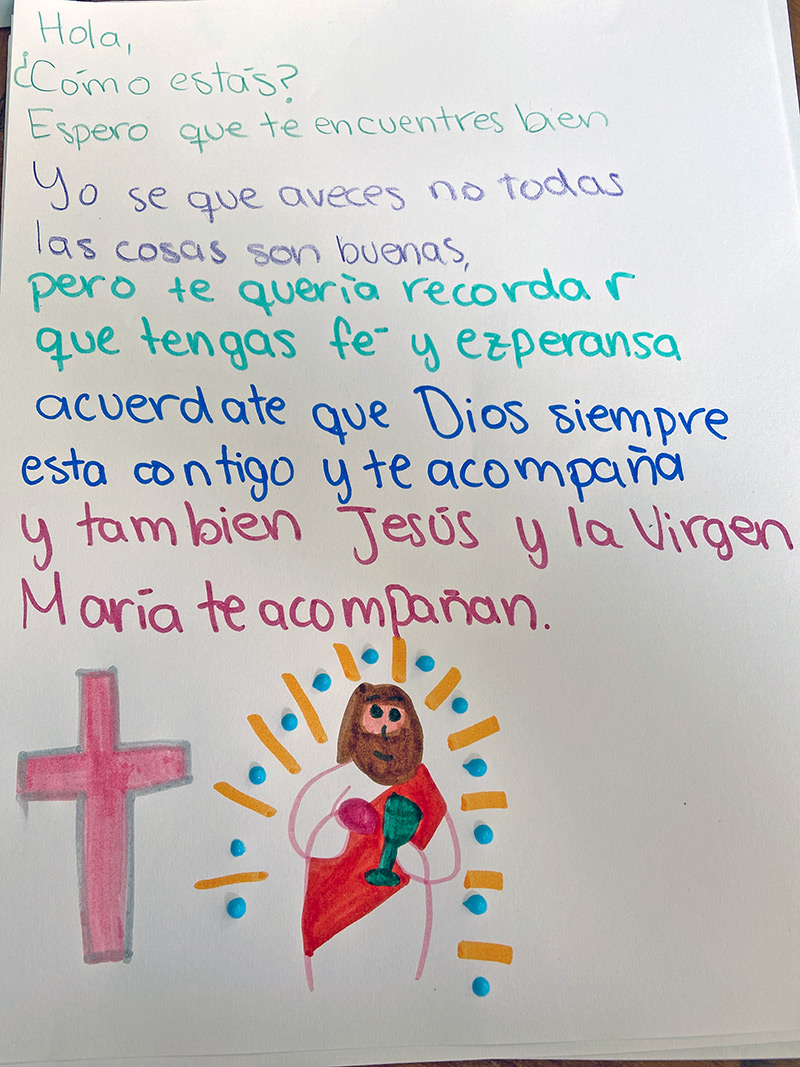 Hola,
¿Cómo estás?
Espero que te encuentres bien
Yo se que aveces no todas
las cosas son buenas,
pero te quería recordar
que tengas fé y ezperansa
acuerdate que Dios siempre
esta contigo y te acompaña
y tambien Jesús y la Virgen
María te acompañan.